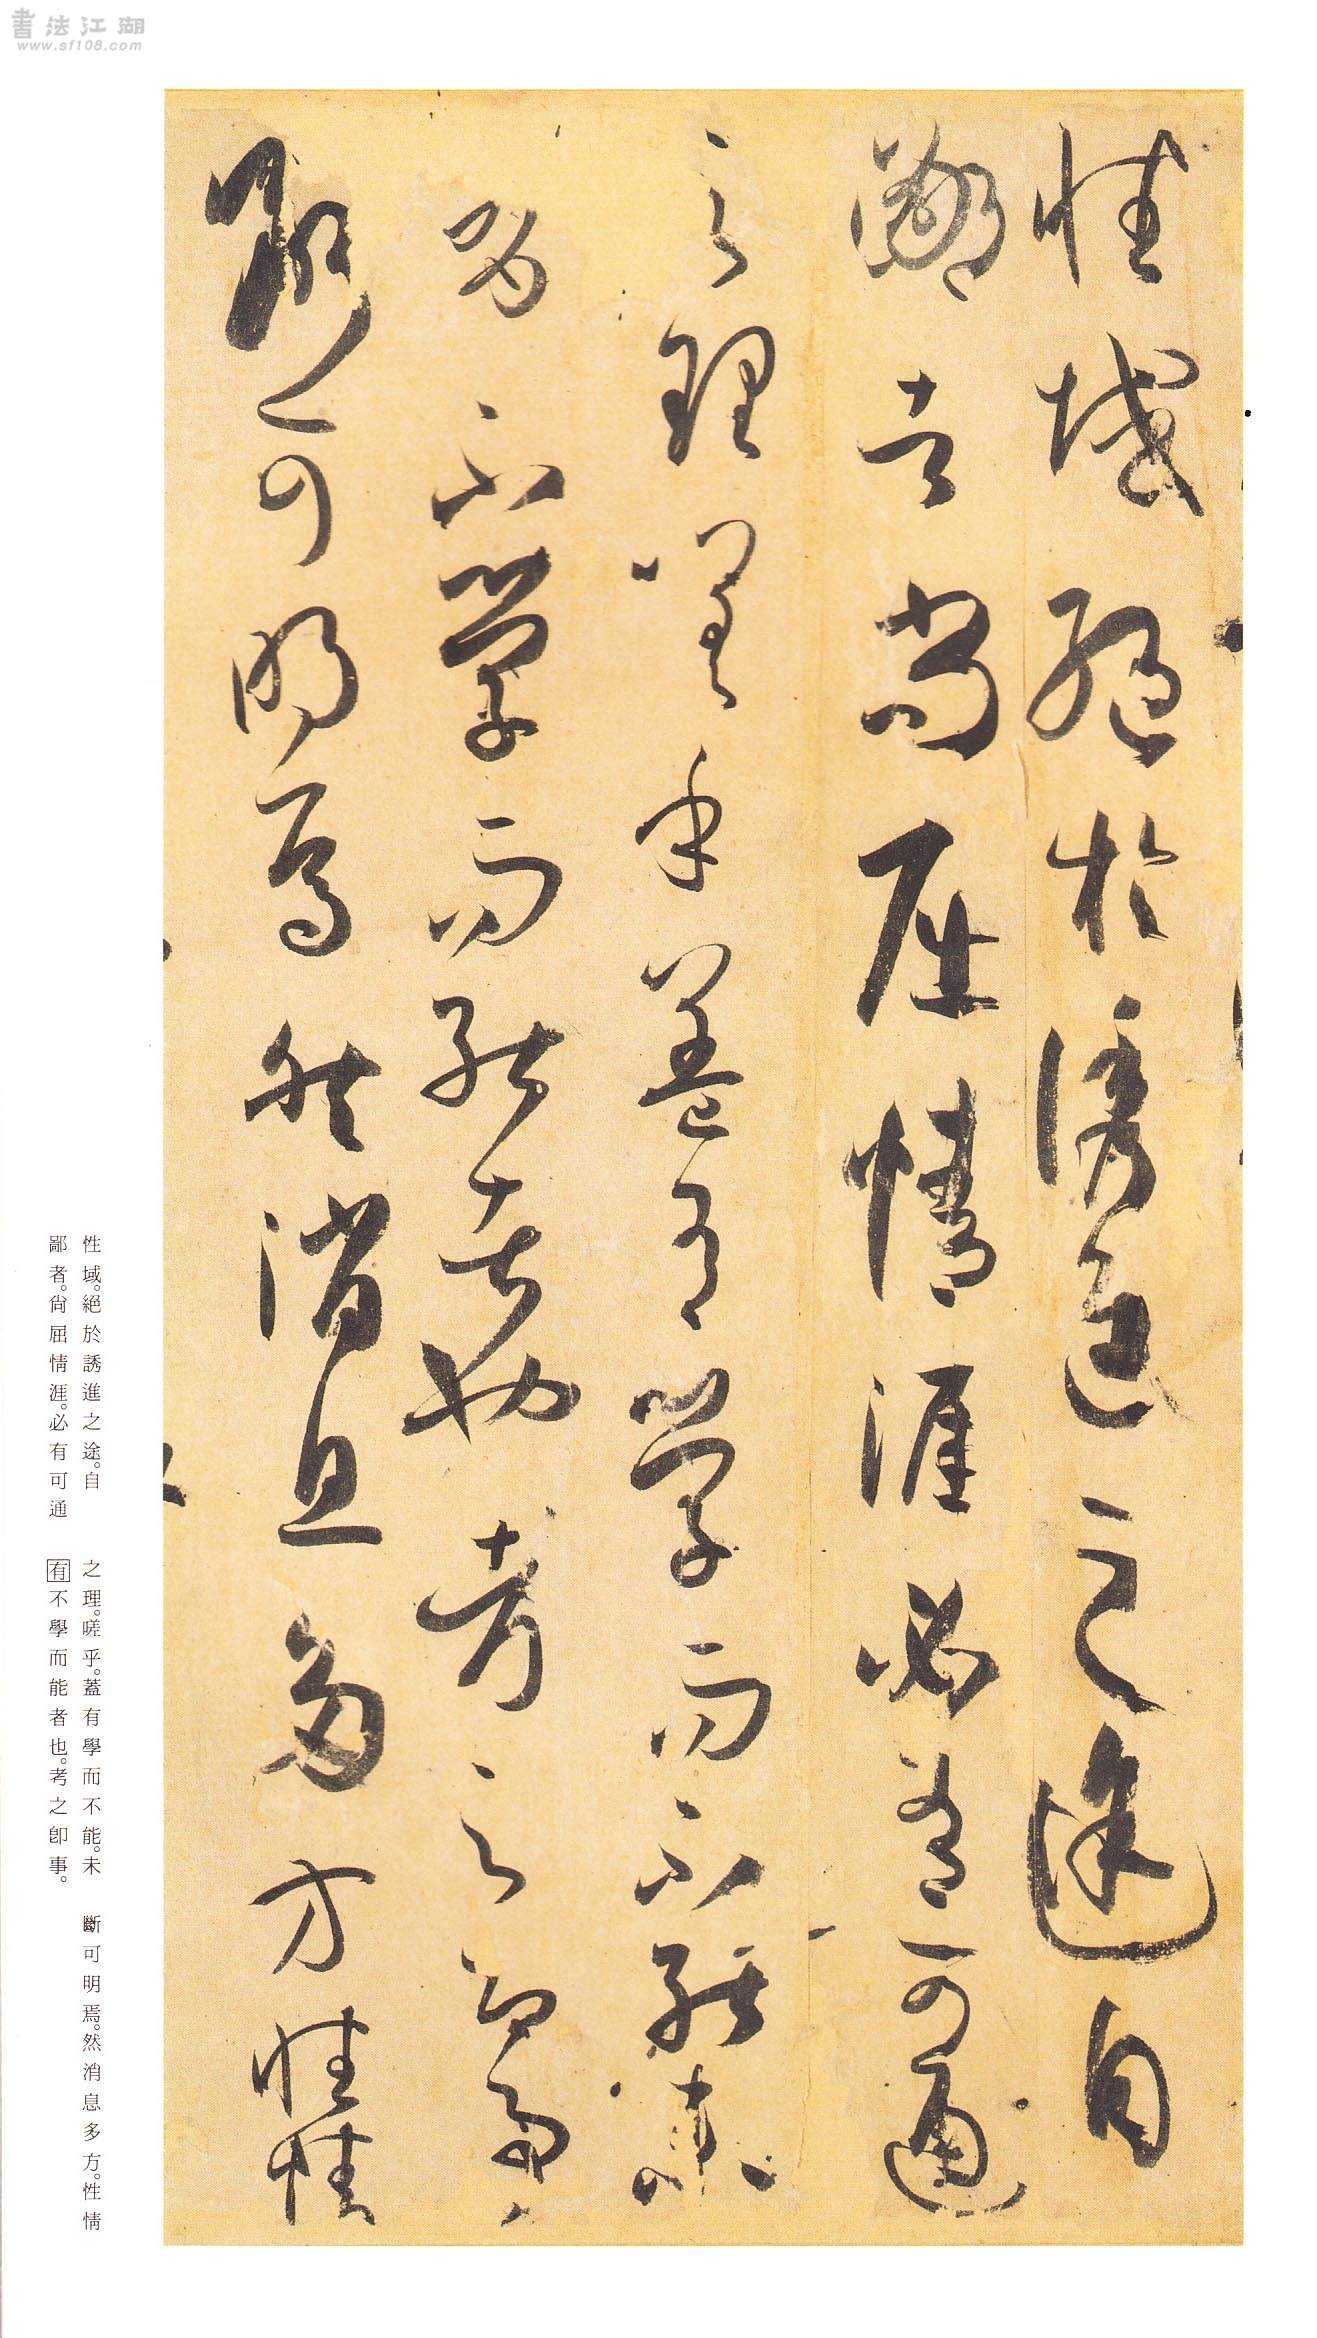 書法江湖
www.sf108.com
性域絕於誘進之途自
鄙者尚屈情涯必有可通
之理嗟乎蓋有學而不能未
有不學而能者也考之即事
斷可明焉然消息多方性情
性域。絕於誘進之途。自
鄙者。尙屈情涯。必有可通
之理。嗟乎。蓋有學而不能。未
有不學而能者也。考之卽事。
斷可明焉。然消息多方。性情